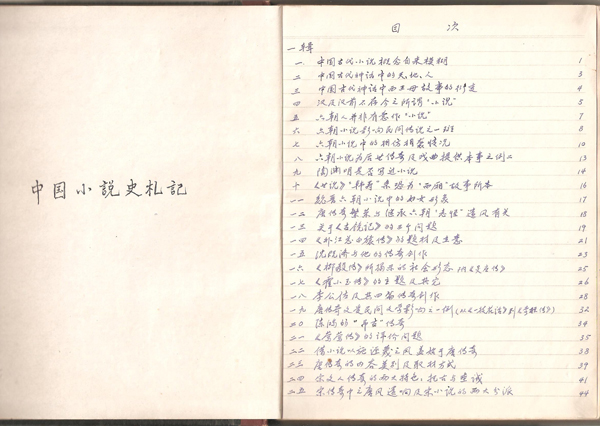 中国小説史札記
目 次
一辑
一 中国古代小说概念自来模糊 1
二 中国古代神话中的天、地、人 3
三 中国古代神话中西王母故事的衍变 4
四 汉及汉前不存今之所谓“小说” 5
五 六朝人并非有意作“小说” 7
六 六朝小说影响民间传说之一斑 8
七 六朝小说中的模仿稍袭情况 10
八 六朝小说为后世传奇及戏曲提供本事之例 12
九 陶渊明是否写过小说 14
十 《世说》“拜寿” 故事所本 16
一一 魏晋六朝小说中的妇女形象 17
一二 唐传奇繁荣与继承六朝“志怪”遗风有关 18
一三 关于《古镜记》的几个问题 19
一四 《补江总白猿传》的题材及主意 21
一五 沈既济与他的传奇创作 23
一六 《柳毅传》所揭示的社会形态 附《灵应传》 25
一七 《霍小玉传》的主题及其它 26
一八 李公佐及其四篇传奇创作 28
一九 唐传奇及受民间文学影响之一例(从《一枝花话》到《李娃传》) 32
二〇 陈鸿的“ ”传奇 34
二一 《莺莺传》的评价问题 35
二二 借小说以施诬蔑之风盖始于唐传奇 38
二三 唐传奇的四大类别及取材方式 39
二四 宋文人传奇的两大特色:托古与垂诫 41
二五 宋传奇中之唐风遗响及宋小说的两大分派 44